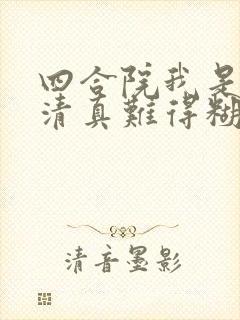 四合院我是
清真难得糊
清音墨影